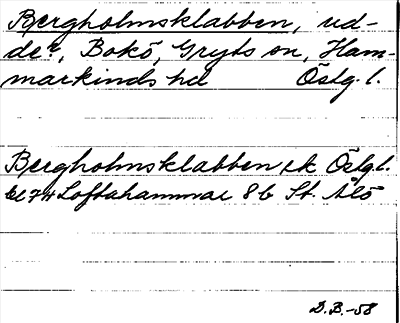 Bergholmsklabben, ud-
de?, Bokö, Gryts sn, Ham-
markinds hd Östg. l.
Bergholmsklabben ek Östg. l.
bl 74 Loftahammar 8 b St. Ålö
D.B.-58